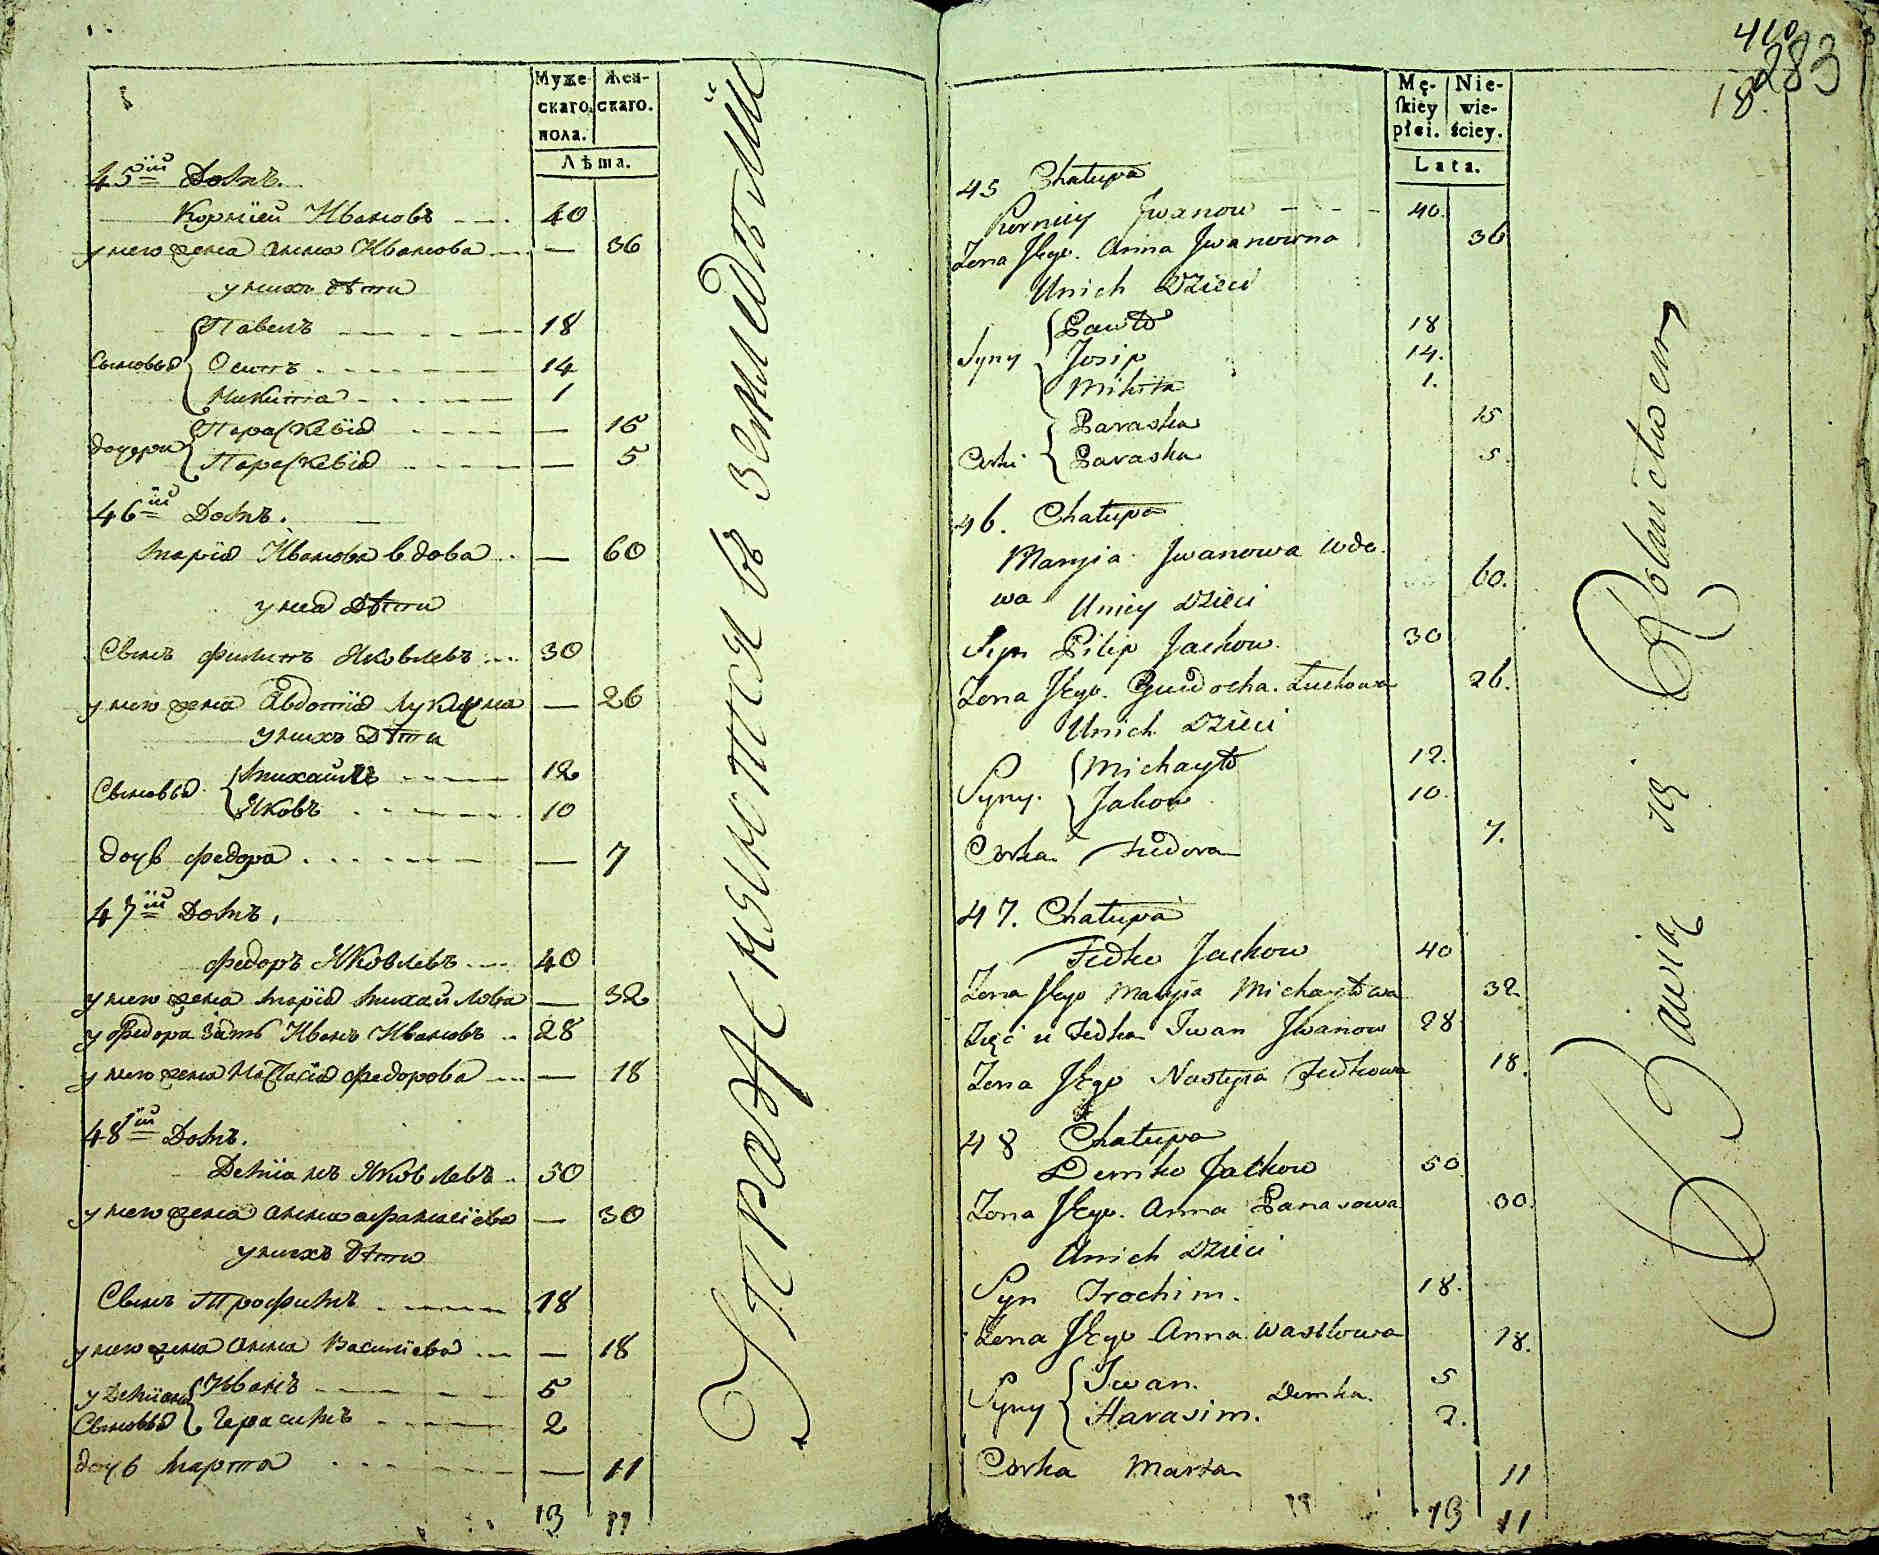 Муже- Жен-
скаго. скаго.
пола.
Лѣта.
45ій Домъ.
Корнїей Ивановъ 40
у него жена Анна Иванова — 36
у нихъ дѣти
Сыновья Павелъ 18
Осипъ 14
Никита 1
дочери Параскевїя — 15
Параскевїя — 5
46ій Домъ.
Марїя Иванова вдова — 60
у нея Дѣти
Сынъ Филипъ Яковлевъ 30
у него жена Авдотїя Лукична — 26
у нихъ Дѣти
Сыновья Михаилъ 12
Яковъ 10
дочь Федора — 7
47ій Домъ.
Федоръ Яковлевъ 40
у него жена Марїя Михайлова — 32
у Федора зять Иванъ Ивановъ 28
у него жена Настасїя Федорова — 18
48ій Домъ.
Демїанъ Яковлевъ 50
у него жена Анна Афанасїева — 30
у нихъ дѣти
Сынъ Трофимъ 18
у него жена Анна Василїева — 18
у Демїана Иванъ 5
Сыновья Герасимъ 2
дочь Марта — 11
13 11
Упражняются въ земледѣлїи
410
283
18.
Mę- Nie-
skiey wie-
płci. ściey.
Lata.
45 Chałupa
Korniey Jwanow 40.
Zona Jego. Anna Jwanowna 36
Unich Dzieci
Syny Pawło 18
Josip 14.
Mikita 1.
Corki Paraska 15
Paraska 5.
46. Chałupa
Maryia Jwanowa wdo- 60.
wa Uniey Dzieci
Syn Pilip Jackow 30
Zona Jego. Eudocha. Łuckowa 26.
Unich Dzieci
Syny. Michayło 12.
Jakow 10.
Corka Fiedora 7.
47. Chałupa
Fedko Jackow 40
Zona Jego Maryia Michayłowa 32
Zięć u Fedka Iwan Jwanow 28
Zona Jego Nastyia Fedkowa 18.
48 Chałupa
Demko Jackow 50
Zona Jego. Anna Panasowa 30.
Unich Dzieci
Syn Trochim. 18.
Zona Jego Anna Wasilowa 18.
Syny Iwan. Demka. 5
Harasim. 2.
Corka Marta 11
13 11
Bawią się Rolnictwem